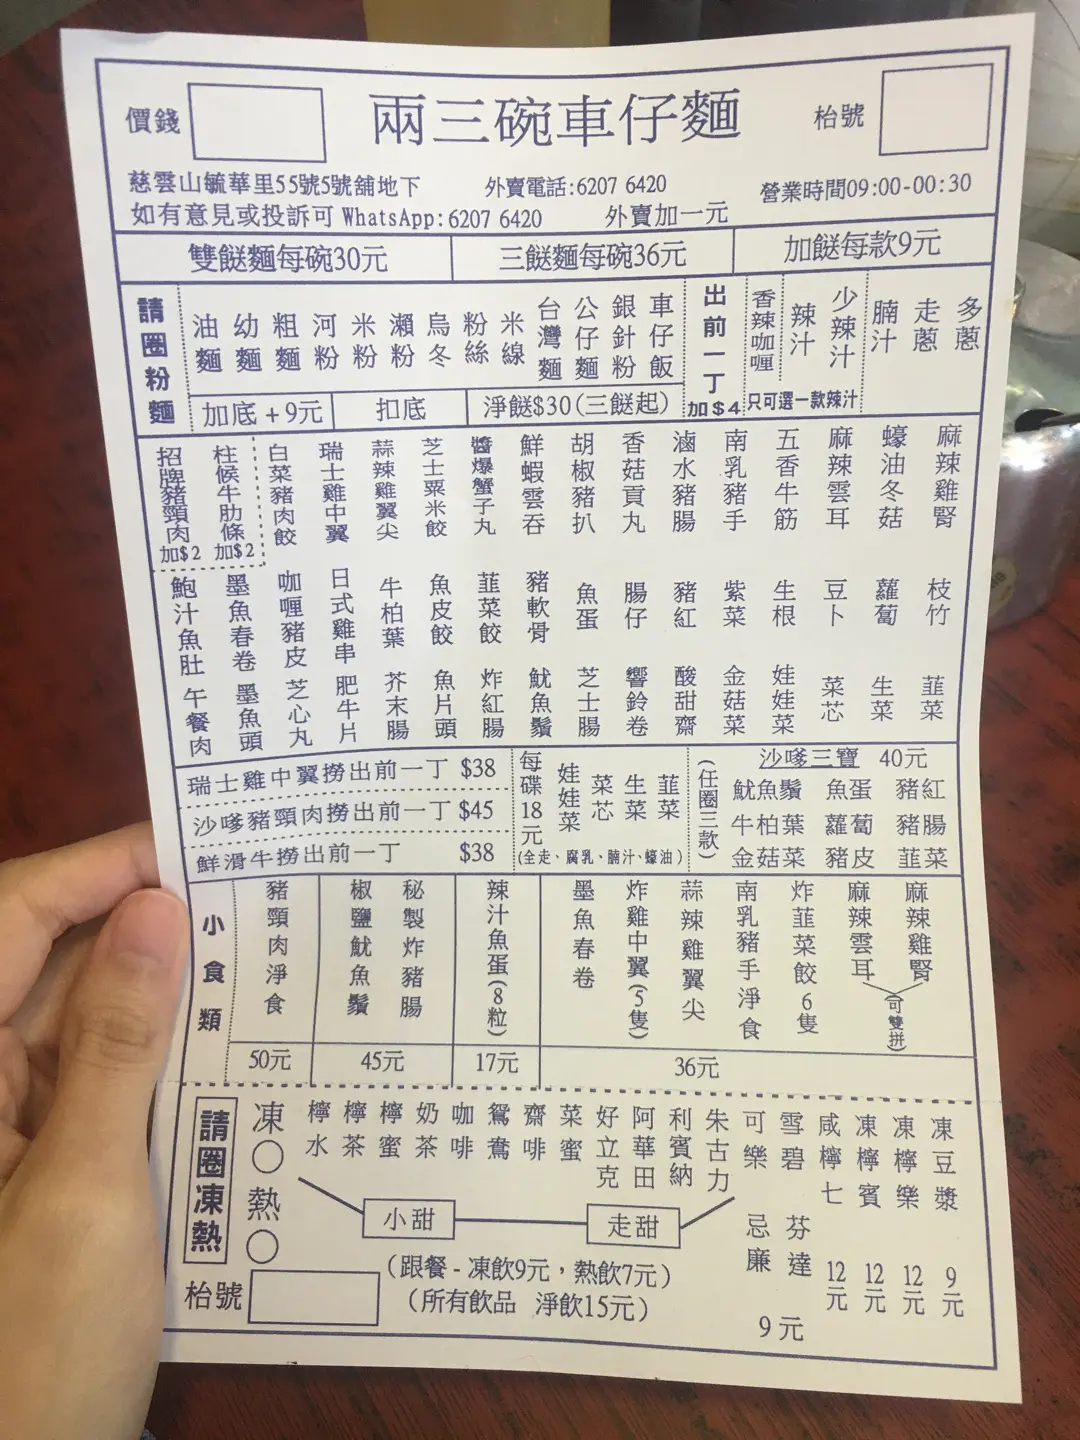 價錢
兩三碗車仔麵
枱號
慈雲山毓華里55號5號舖地下 外賣電話:6207 6420 營業時間09:00-00:30
如有意見或投訴可 WhatsApp:6207 6420 外賣加一元
雙餸麵每碗30元 三餸麵每碗36元 加餸每款9元
請圈粉麵
油麵 幼麵 粗麵 河粉 米粉 瀨粉 烏冬 粉絲 米線 台灣麵 公仔麵 銀針粉 車仔飯
出前一丁 加$4
香辣咖喱 辣汁 少辣汁
只可選一款辣汁
腩汁 走蔥 多蔥
加底 +9元 扣底 淨餸$30(三餸起)
招牌豬頸肉 加$2 柱候牛肋條 加$2 白菜豬肉餃 瑞士雞中翼 蒜辣雞翼尖 芝士粟米餃 醬爆蟹子丸 鮮蝦雲吞 胡椒豬扒 香菇貢丸 滷水豬腸 南乳豬手 五香牛筋 麻辣雲耳 蠔油冬菇 麻辣雞腎
鮑汁魚肚 墨魚春卷 咖喱豬皮 日式雞串 牛柏葉 魚皮餃 韮菜餃 豬軟骨 魚蛋 腸仔 豬紅 紫菜 生根 豆卜 蘿蔔 枝竹
午餐肉 墨魚頭 芝心丸 肥牛片 芥末腸 魚片頭 炸紅腸 魷魚鬚 芝士腸 響鈴卷 酸甜齋 金菇菜 娃娃菜 菜芯 生菜 韮菜
瑞士雞中翼撈出前一丁 $38
沙嗲豬頸肉撈出前一丁 $45
鮮滑牛撈出前一丁 $38
每碟18元
娃娃菜 菜芯 生菜 韮菜
(全走、腐乳、腩汁、蠔油)
(任圈三款)
沙嗲三寶 40元
魷魚鬚 魚蛋 豬紅
牛柏葉 蘿蔔 豬腸
金菇菜 豬皮 韮菜
小食類
豬頸肉淨食
50元
椒鹽魷魚鬚 秘製炸豬腸
45元
辣汁魚蛋(8粒)
17元
墨魚春卷 炸雞中翼(5隻) 蒜辣雞翼尖 南乳豬手淨食 炸韮菜餃6隻 麻辣雲耳 麻辣雞腎
(可雙拼)
36元
請圈凍熱
凍○
熱○
檸水 檸茶 檸蜜 奶茶 咖啡 鴛鴦 齋啡 菜蜜 好立克 阿華田 利賓納 朱古力
小甜 走甜
可樂 雪碧 忌廉 芬達
9元
咸檸七 12元
凍檸賓 12元
凍檸樂 12元
凍豆漿 9元
(跟餐 - 凍飲9元，熱飲7元)
(所有飲品 淨飲15元)
枱號